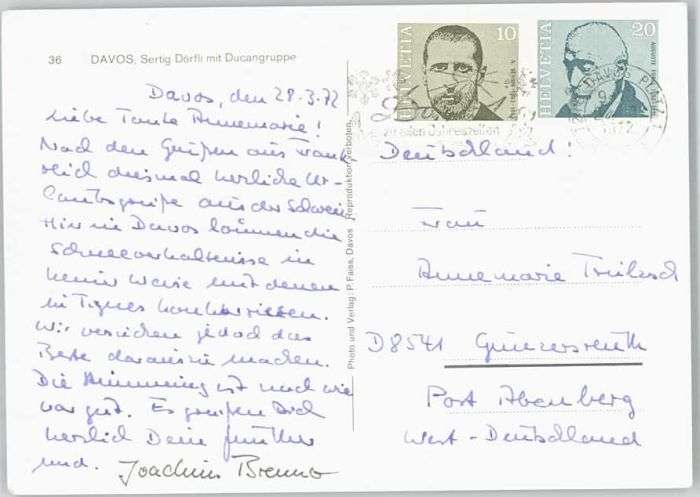 36 DAVOS, Sertig Dörfli mit Ducangruppe
Davos, den 28.3.72
Liebe Tante Annemarie!
Nach den Grüßen aus Frank
reich diesmal herzliche Ur-
laubsgrüße aus der Schweiz
Hier in Davos können die
Schneeverhältnisse in
keiner Weise mit denen
in Tignes konkurrieren.
Wir versuchen jedoch das
Beste daraus zu machen.
Die Stimmung ist nach wie
vor gut. Es grüßen Dich
herzlich Dein Günther
und. Joachim Brenno
Photo und Verlag: P. Faiss, Davos Reproduktion verboten
HELVETIA 10
HELVETIA 20
AUGUSTE FOREL
DAVOS PLATZ
zu allen Jahreszeiten
Deutschland!
Frau
Annemarie
D8541 Günzersreuth
Post Abenberg
West-Deutschland